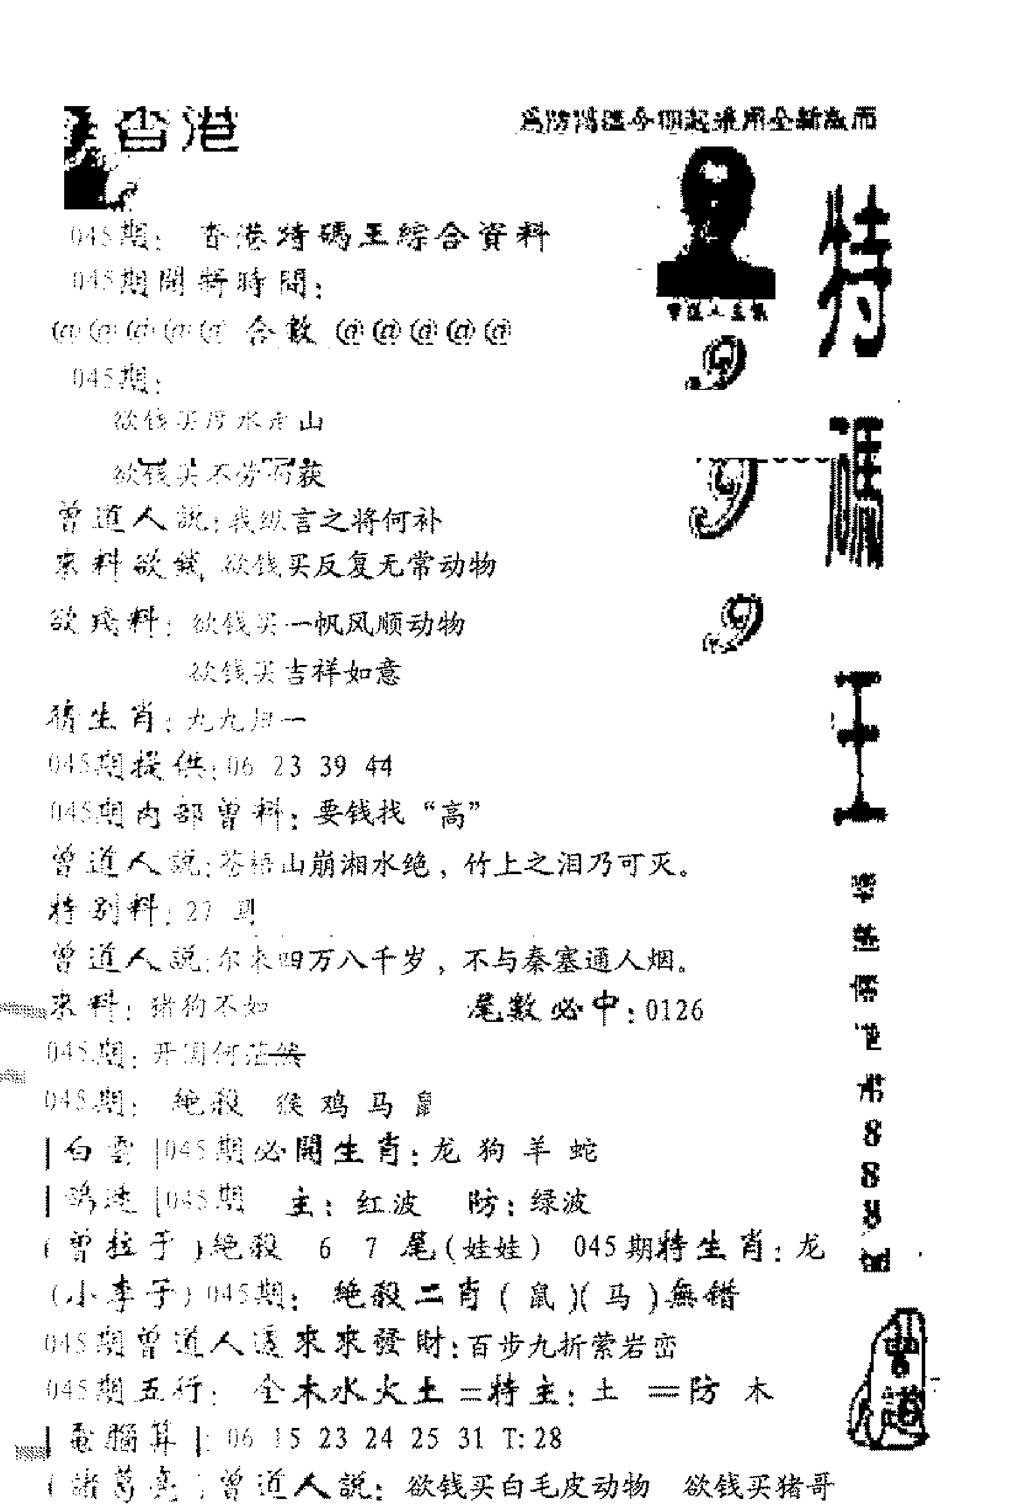 香港
為防混淆今期起採用全新版而
045期: 香港特碼王綜合資料
045期開新時間:
@@@@@ 合數 @@@@@
045期:
欲钱买厚水走山
欲钱买不劳而获
曾道人說:我纵言之将何补
來料欲錢, 欲钱买反复无常动物
欲錢料: 欲钱买一帆风顺动物
欲钱买吉祥如意
猜生肖: 九九归一
045期提供:06 23 39 44
045期内部曾料: 要钱找“高”
曾道人說:苍梧山崩湘水绝，竹上之泪乃可灭。
特别料: 27
曾道人說:尔来四万八千岁，不与秦塞通人烟。
來料: 猪狗不如 尾數必中:0126
045期: 开国何茫然
045期: 絶殺 猴 鸡 马 鼠
|白雲|045期必開生肖:龙 狗 羊 蛇
045期 主: 红波 防: 绿波
(曾拉子)絶殺 6 7 尾(娃娃) 045期特生肖: 龙
(小李子)045期: 絶殺二肖(鼠)(马)無錯
045期曾道人送來來發財:百步九折萦岩峦
045期五行: 全木水火土=特主: 土 =防 木
|電腦算|: 06 15 23 24 25 31 T:28
(諸葛亮)曾道人説: 欲钱买白毛皮动物 欲钱买猪哥
特
碼
王
999
888
曾道